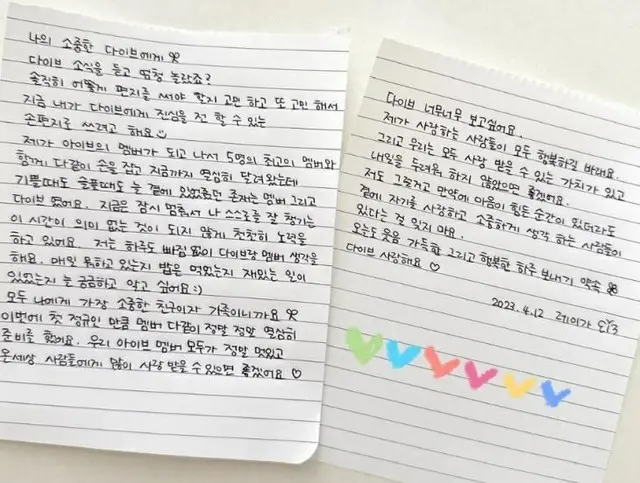 나의 소중한 다이브에게
다이브 소식을 듣고 엄청 놀랐죠?
솔직히 어떻게 편지를 써야 할지 고민 하고 또 고민 해서
지금 내가 다이브에게 진심을 전 할 수 있는
손편지로 쓰려고 해요
제가 아이브의 멤버가 되고 나서 5명의 최고의 멤버와
함께 다같이 손을 잡고 지금까지 열심히 달려왔는데
기쁠때도 슬플때도 늘 곁에 있었던 존재는 멤버 그리고
다이브 였어요. 지금은 잠시 멈춰서 나 스스로를 잘 챙기는
이 시간이 의미 없는 것이 되지 않게 천천히 노력을
하고 있어요. 저는 하루도 빠짐 없이 다이브랑 멤버 생각을
해요. 매일 뭐하고 있는지 밥은 먹었는지 재밌는 일이
있었는지 늘 궁금하고 알고 싶어요 :)
모두 나에게 가장 소중한 친구이자 가족이니까요
이번에 첫 정규인 만큼 멤버 다같이 정말 정말 열심히
준비를 했어요. 우리 아이브 멤버 모두가 정말 멋있고
온세상 사람들에게 많이 사랑 받을 수 있으면 좋겠어요 ♡
다이브 너무너무 보고싶어요.
제가 사랑하는 사람들이 모두 행복하길 바래요.
그리고 우리는 모두 사랑 받을 수 있는 가치가 있고
내일을 두려워 하지 않았으면 좋겠어요.
저도 그렇고 만약에 마음이 힘든 순간이 있더라도
곁에 자기를 사랑하고 소중하게 생각 하는 사람들이
있다는 걸 잊지 마요.
오늘도 웃음 가득한 그리고 행복한 하루 보내기 약속
다이브 사랑해요 ♡
2023. 4.12 레이가